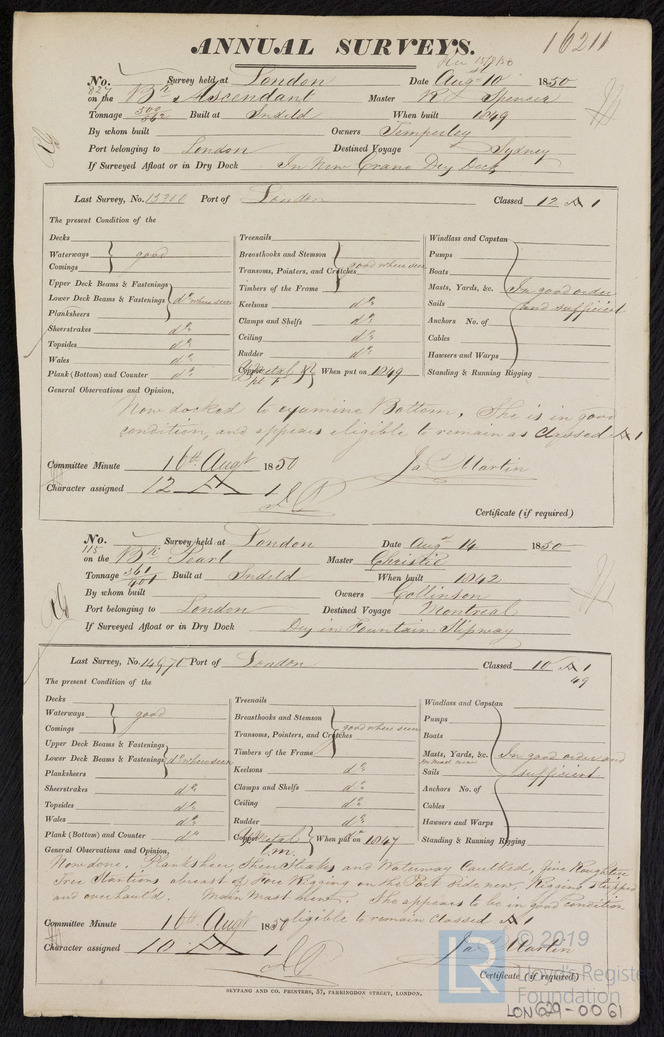 16211
ANNUAL SURVEYS.
No. 827 Survey held at London Date Augst 10 1850
on the Bk Ascendant Master R Spencer
Tonnage 500 Built at Sndrld When built 1849
By whom built Owners Temperley
Port belonging to London Destined Voyage Sydney
If Surveyed Afloat or in Dry Dock In New Crane Dry Dock
Last Survey, No. Port of London Classed 12 A 1
The present Condition of the
Decks
Waterways good
Comings
Upper Deck Beams & Fastenings
Lower Deck Beams & Fastenings do where seen
Planksheers
Sheerstrakes do
Topsides do
Wales do
Plank (Bottom) and Counter do
Treenails
Breasthooks and Stemson
Transoms, Pointers, and Crutches good where seen
Timbers of the Frame
Keelsons do
Clamps and Shelfs do
Ceiling do
Rudder do
Copper Metal When put on 1849
Windlass and Capstan
Pumps
Boats
Masts, Yards, &c. In good order
Sails and sufficient
Anchors No. of
Cables
Hawsers and Warps
Standing & Running Rigging
General Observations and Opinion,
Now docked to examine Bottom, She is in good
condition, and appears eligible to remain as Classed A 1
Committee Minute 16th Augt 1850 Jas Martin
Character assigned 12 A 1
Certificate (if required)
No. 115 Survey held at London Date Augst 14 1850
on the Bk Pearl Master Christie
Tonnage 361 401 Built at Sndrld When built 1842
By whom built Owners Collinson
Port belonging to London Destined Voyage Montreal
If Surveyed Afloat or in Dry Dock Dry in Fountain Slipway
Last Survey, No. 14970 Port of London Classed 10 A 1
49
The present Condition of the
Decks
Waterways good
Comings
Upper Deck Beams & Fastenings
Lower Deck Beams & Fastenings do where seen
Planksheers
Sheerstrakes do
Topsides do
Wales do
Plank (Bottom) and Counter do
Treenails
Breasthooks and Stemson
Transoms, Pointers, and Crutches good where seen
Timbers of the Frame
Keelsons do
Clamps and Shelfs do
Ceiling do
Rudder do
Copper Metal When put on 1847
Windlass and Capstan
Pumps
Boats
Masts, Yards, &c. In good order and
Main Mast new
Sails sufficient
Anchors No. of
Cables
Hawsers and Warps
Standing & Running Rigging
General Observations and Opinion,
Now done. Planksheer, Sheerstrakes and Waterway Caulked, five Roughtree
Tree Stantions abreast of Fore Rigging on the Port side new. Rigging stripped
and overhauld. Main Mast new. She appears to be in good condition
eligible to remain Classed A 1
Committee Minute 16th Augt 1850
Character assigned 10 A 1 Jas Martin
Certificate (if required)
SEYFANG AND CO. PRINTERS, 57, FARRINGDON STREET, LONDON.
LR © 2019
Lloyd's Register
Foundation
LON 629-0061